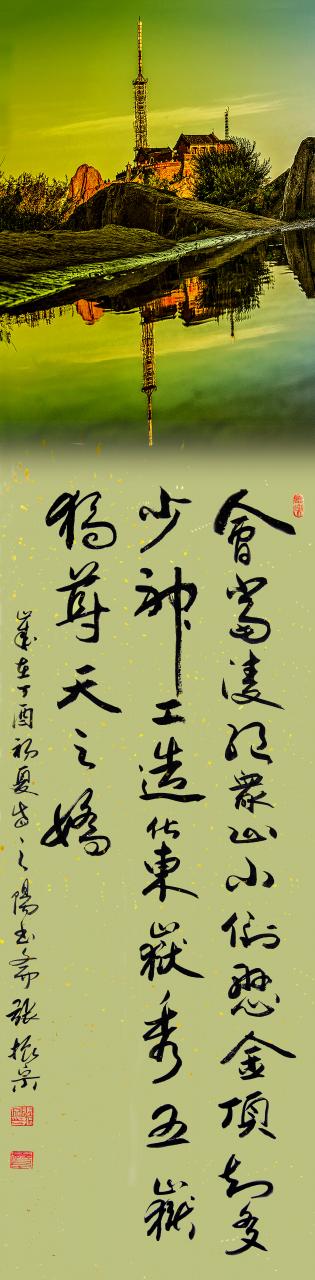 會當凌絕眾山小俯瞰金頂知多
少神工造化東嶽秀五嶽
獨尊天之嬌
歲在丁酉初夏岱之陽玉斋張振宗